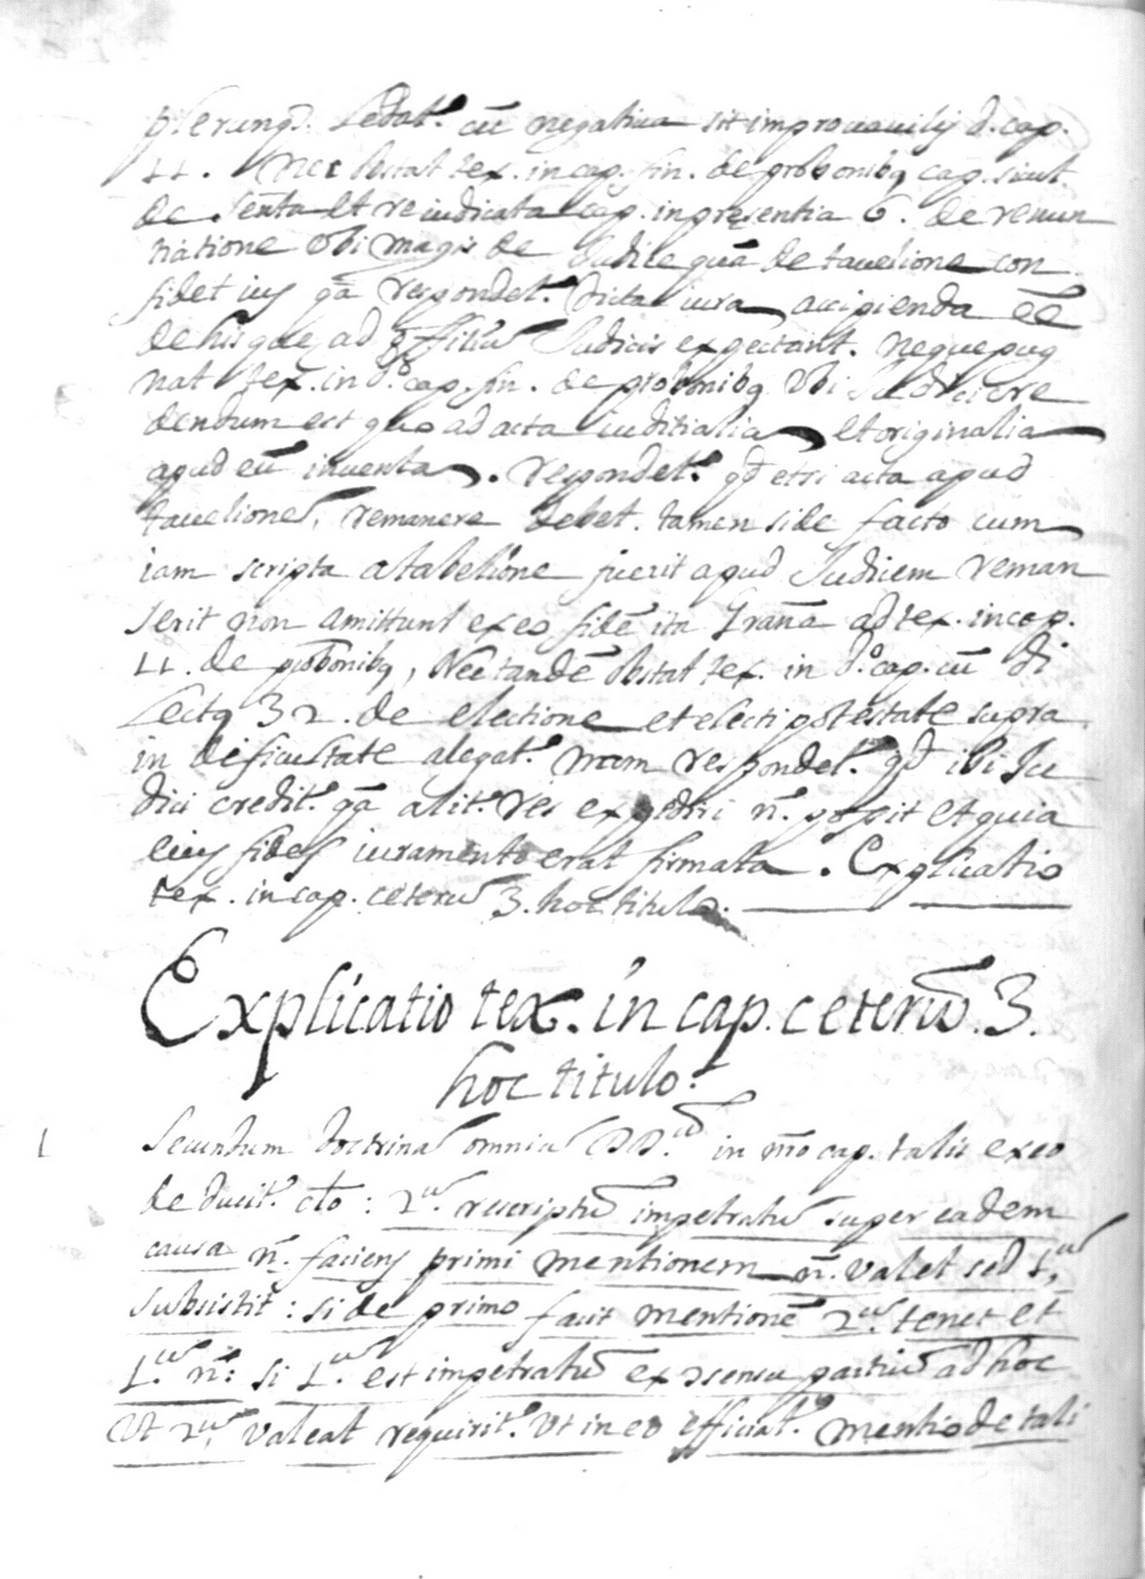 plerunq. cū negativa sit improvavilis d. cap.
11. Nec obstat tex. in cap. fin. de probonibq cap. sicut
de senta et re iudicata cap. in presentia 6. de renun
tiatione obi magis de Judice quā de tavelione con
fidet ius qa respondet.r Dicta iura accipienda eē
de his que ad officiū Judicis expectant. neque pug
nat tex. in d.o cap. fin. de probonibq Vbi Judici cre
dendum est quo ad acta iuditialia et originalia
apud eū inventa. respondet.r qd etsi acta apud
tavelionē, remanere debet. tamen si de facto cum
iam scripta a tabelione fuerit apud Judicem reman
serit non amittunt ex eo fidē ita ad tex. in cap.
11. de probonibq, Nec tandē obstat tex. in d.o cap. cū di
Lectq 32. de electione et electi potestate supra
in deficultate alegat.r nam respondet.r qd ibi Ju
dici credit.r qa alit.r res expediri n. possit et quia
eius fides iuramento erat firmata. Explicatio
tex. in cap. ceterū 3. hoc titulo.
Explicatio tex. in cap. ceterū. 3.
hoc titulo.
1 Secundum doctrinā omniū DD.ū in cap. talis ex eo
deducit.r : 2.ū rescriptū impetratū super eadem
causa n. faciens primi mentionem n. valet sed 1.ū
subsistit: si de primo facit mentionē 2.ū tenet et
1.ū n: si 1.ū est impetratū ex ɔsensu partiū ad hoc
Vt 2.ū valeat requirit.r Vt in eo efficiat.r mentio de tali